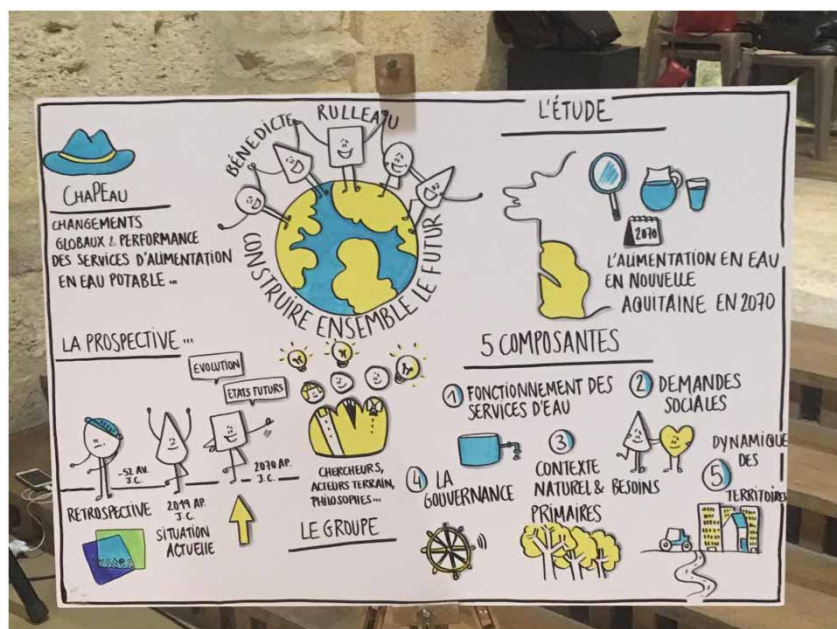 BÉNÉDICTE RULLEAU
CONSTRUIRE ENSEMBLE LE FUTUR
CHAPEAU
CHANGEMENTS
GLOBAUX & PERFORMANCE
DES SERVICES D'ALIMENTATION
EN EAU POTABLE ...
L'ÉTUDE
2070
L'ALIMENTATION EN EAU
EN NOUVELLE
AQUITAINE EN 2070
LA PROSPECTIVE ...
EVOLUTION
ETATS FUTURS
-52 AV.
J.C.
RETROSPECTIVE
2019 AP.
J.C.
SITUATION
ACTUELLE
2070 AP.
J.C.
CHERCHEURS,
ACTEURS TERRAIN,
PHILOSOPHES...
LE GROUPE
5 COMPOSANTES
1 FONCTIONNEMENT DES
SERVICES D'EAU
2 DEMANDES
SOCIALES
3
CONTEXTE
NATUREL & BESOINS
PRIMAIRES
4 LA
GOUVERNANCE
DYNAMIQUE
5 DES
TERRITOIRES